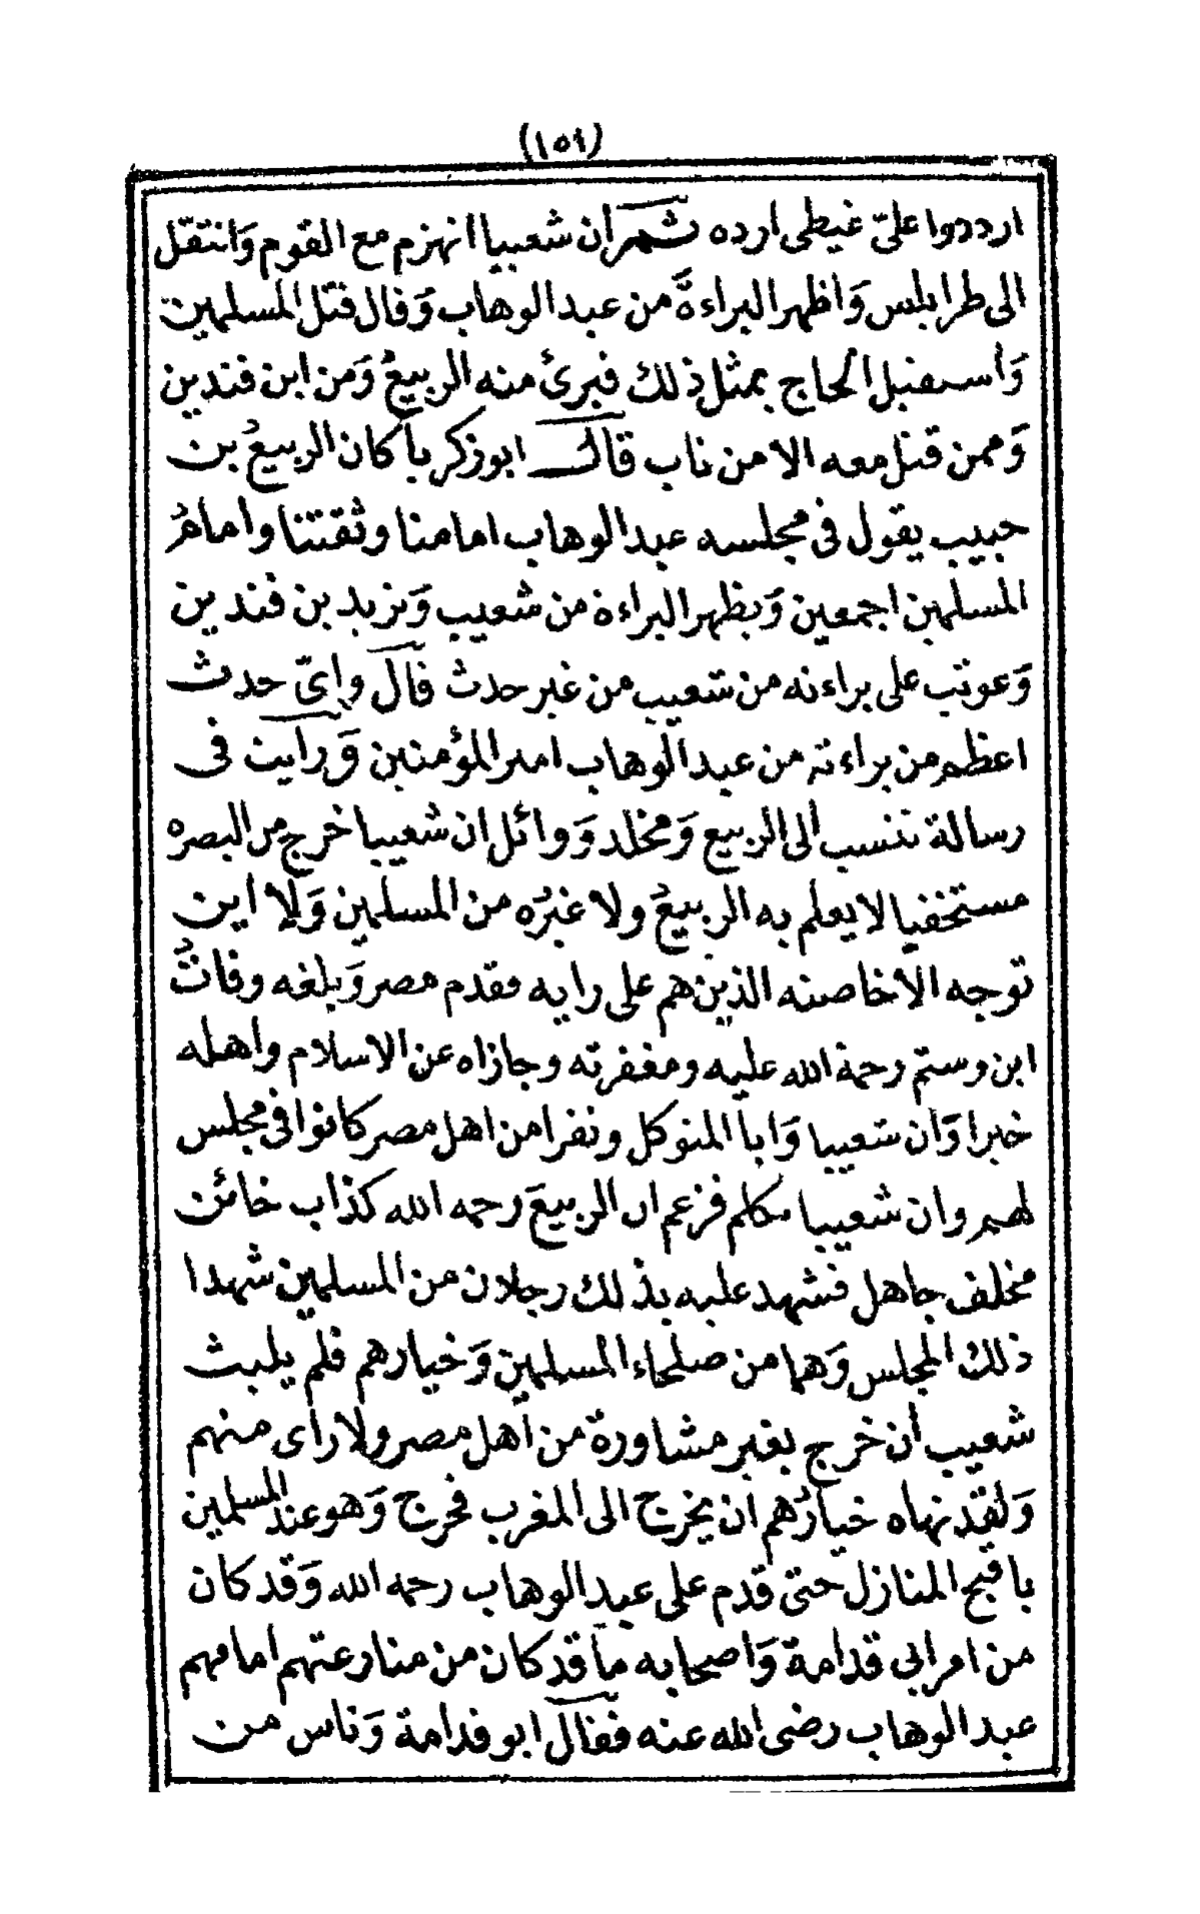 (١٥١)
ارددوا علىّ غيطى ارده ثم ان شعيبا انهزم مع القوم وَانتقل
الى طرابلس وَاظهر البراءة من عبد الوهاب وَقال قتل المسلمين
وَاستقبل الحاج بمثل ذلك فبرئ منه الربيعُ وَمن ابن فندين
وَممن قتل معه الا من تاب قال ابو زكرياً كان الربيعُ بن
حبيب يقول فى مجلسه عبد الوهاب امامنا وثقتنا وامامُ
المسلمين اجمعين وَيظهر البراءة من شعيب وَيزيد بن فندين
وَعوتب على براءته من شعيب من غير حدث قال واىّ حدث
اعظم من براءته من عبد الوهاب امير المؤمنين وَرايت فى
رسالة تنسب الى الربيع وَمخلد وَوائل ان شعيبا خرج من البصره
مستخفيا لا يعلم به الربيعُ ولا غيرُه من المسلمين وَلا اين
توجه الا خاصته الذين هم على رايه فقدم مصر وَبلغه وفاتُ
ابن رستم رحمة الله عليه ومغفرته وجازاه عن الاسلام واهله
خيرا وَان شعيبا وَابا المتوكل ونفرا من اهل مصر كانوا فى مجلس
لهم وان شعيبا تكلم فزعم ان الربيعَ رحمه الله كذاب خائن
مخلف جاهل فشهد عليه بذلك رجلان من المسلمين شهدا
ذلك المجلس وَهما من صلحاء المسلمين وَخيارهم فلم يلبث
شعيب أن خرج بغير مشاورة من أهل مصر ولا رأى منهم
وَلقد نهاه خيارُهم ان يخرج الى المغرب فخرج وَهو عند المسلمين
باقبح المنازل حتى قدم على عبد الوهاب رحمه الله وَقد كان
من امر ابى قدامة وَاصحابه ما قد كان من منازعتهم امامهم
عبد الوهاب رضى الله عنه فقال ابو قدامة وَناس من